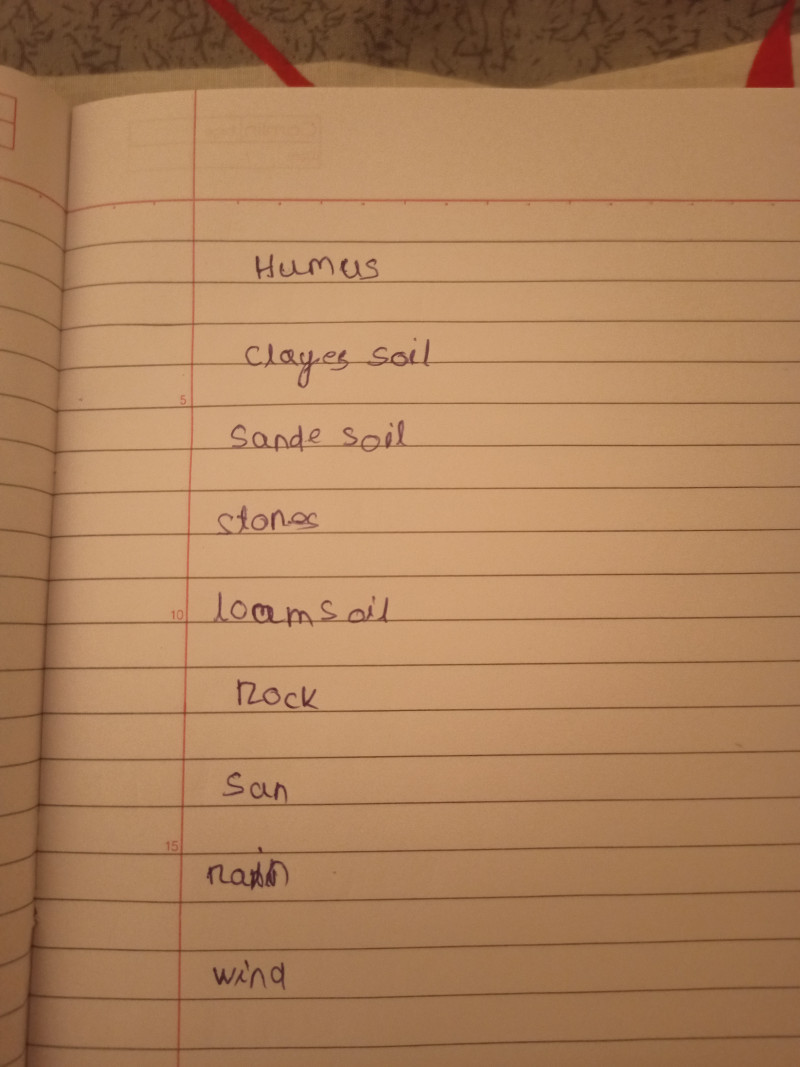 Humus
Clayes soil
5
Sande soil
stones
10
loam soil
Rock
San
15
rain
wind